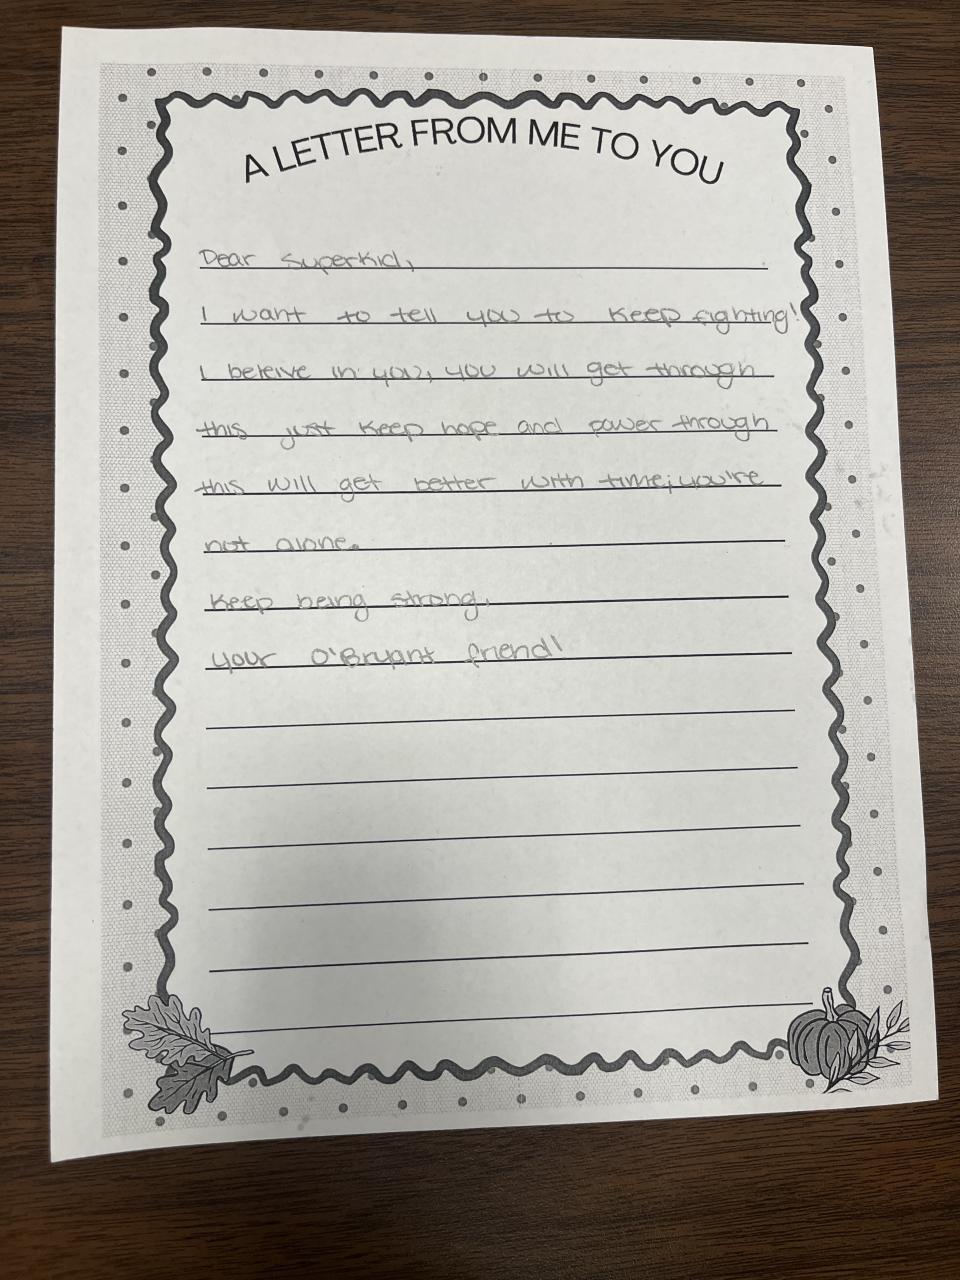 A LETTER FROM ME TO YOU
Dear Superkid,
I want to tell you to keep fighting!
I beleive in you, you will get through
this just keep hope and power through
this will get better with time; you're
not alone.
Keep being strong,
your O'Bryant friend!